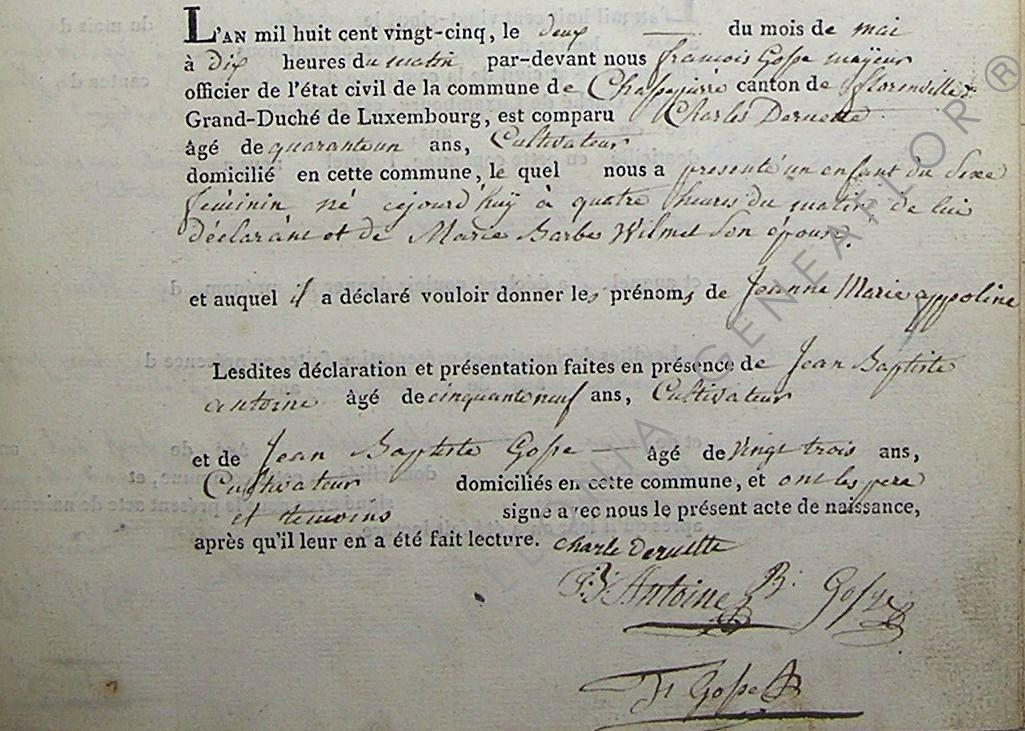 L'AN mil huit cent vingt-cinq, le deux du mois de mai
à dix heures du matin par-devant nous francois Gosse mayeur
officier de l'état civil de la commune de canton de florenville
Grand-Duché de Luxembourg, est comparu Charles Deruette
âgé de quaranteun ans, Cultivateur
domicilié en cette commune, le quel nous a presenté un enfant du Sexe
féminin né cejourd'huy à quatre heures du matin de lui
déclarant et de Marie Barbe Wilmet Son épouse.
et auquel il a déclaré vouloir donner les prénoms de Jeanne Marie appoline
Lesdites déclaration et présentation faites en présence de Jean Baptiste
antoine âgé de cinquanteneuf ans, Cultivateur
et de Jean Baptiste Gosse âgé de vingt trois ans,
Cultivateur domiciliés en cette commune, et ont les pere
et temoins signé avec nous le présent acte de naissance,
après qu'il leur en a été fait lecture. Charle deruette
Antoine B. Gosse
fr Gosse